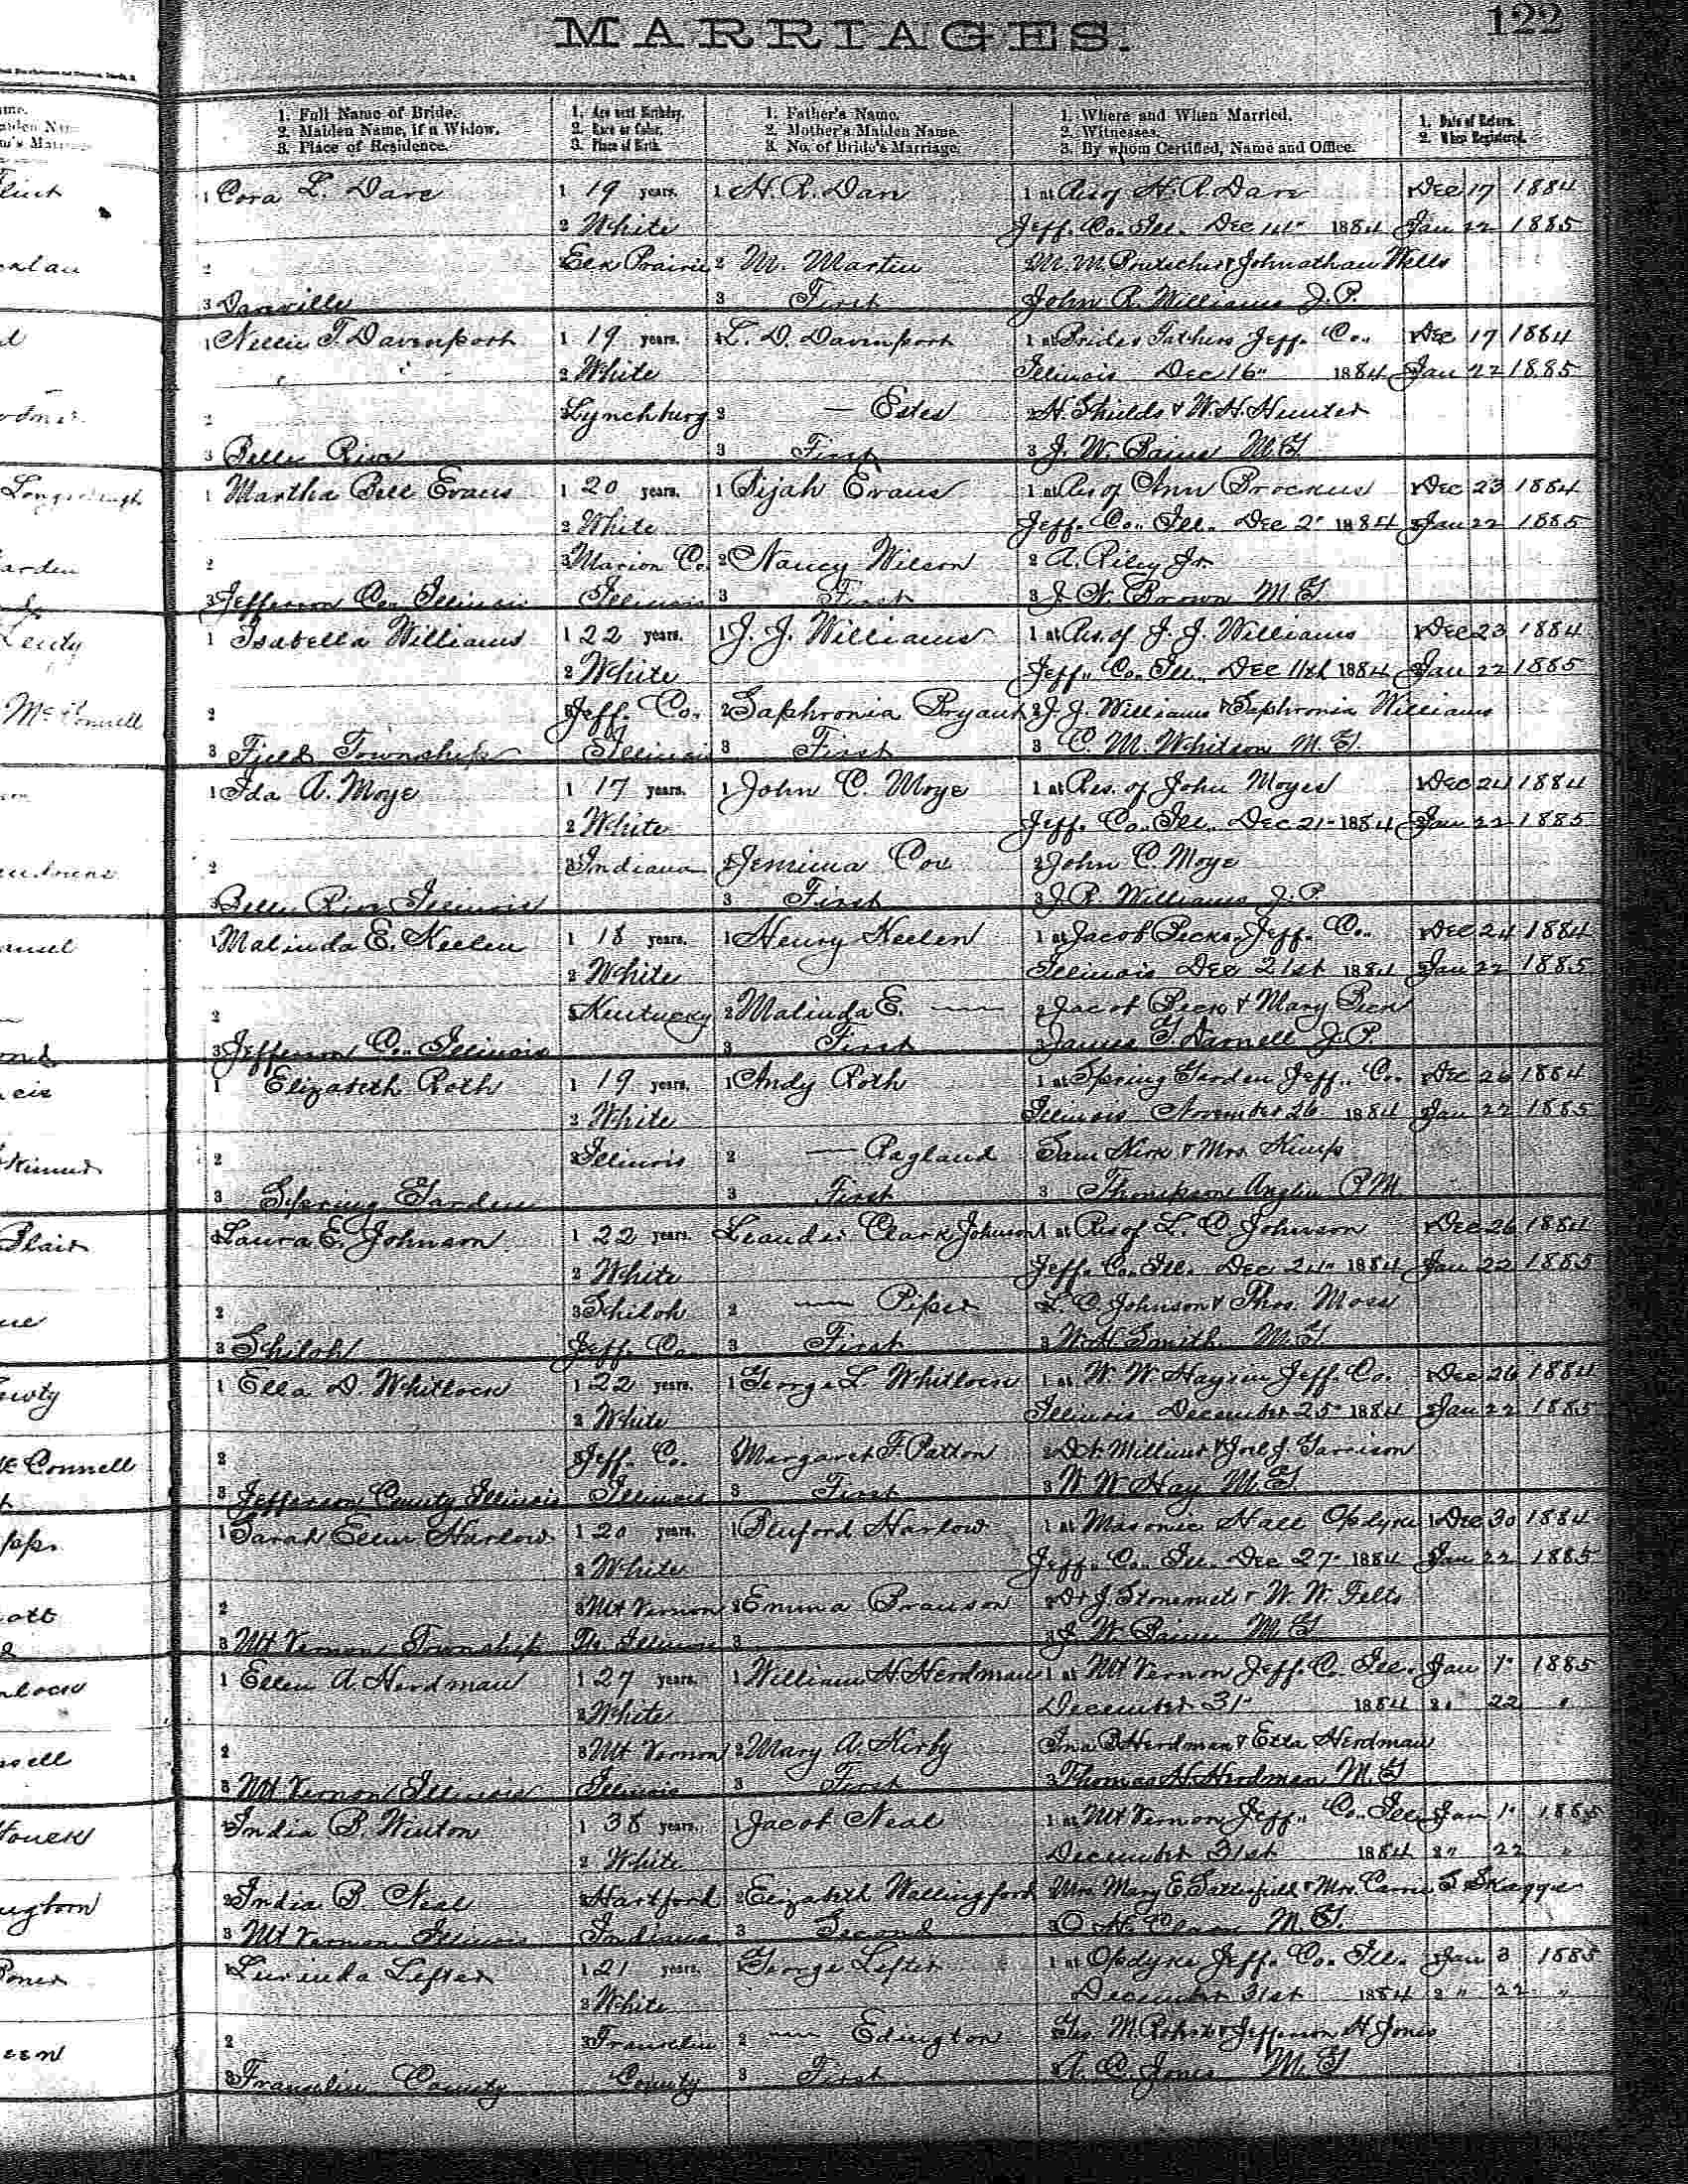 MARRIAGES.
122
1. Full Name of Bride.
2. Maiden Name, if a Widow.
3. Place of Residence.
1. Age next Birthday.
2. Race or Color.
3. Place of Birth.
1. Father's Name.
2. Mother's Maiden Name.
3. No. of Bride's Marriage.
1. Where and When Married.
2. Witnesses.
3. By whom Certified, Name and Office.
1. Date of Return.
2. When Registered.
1 Cora L. Dare 1 19 years. 1 H. R. Dare 1 at Res of H. R. Dare Dec 17 1884
2 White Jeff. Co. Ill. Dec 14" 1884 Jan 22 1885
2 Elk Prairie 2 M. Martin & Johnathan Wells
3 Danville 3 First John R. Williams J.P.
1 Nellie T. Davenport 1 19 years. 1 L. D. Davenport 1 at Brides Fathers Jeff. Co. Dec 17 1884
2 White Illinois Dec 16" 1884 Jan 22 1885
2 Lynchburg 2 — Estes 2 H. Shields & W. H. Hunter
3 Belle River 3 First 3 J. W. Paine M.G
1 Martha Bell Evans 1 20 years. 1 Pijah Evans 1 at Res of Ann Brockus Dec 23 1884
2 White Jeff. Co. Ill. Dec 2" 1884 Jan 22 1885
2 3 Marion Co. 2 Nancy Wilson 2 A. Riley Jr.
3 Jefferson Co. Illinois Illinois 3 First 3 J. N. Brown M.G
1 Isabella Williams 1 22 years. 1 J. J. Williams 1 at Res. of J. J. Williams Dec 23 1884
2 White Jeff. Co. Ill. Dec 11th 1884 Jan 22 1885
2 3 Jeff. Co. 2 Saphronia Bryant 2 J. J. Williams & Saphronia Williams
3 Field Township Illinois 3 First 3 C. M. Whitson M.G.
1 Ida A. Moye 1 17 years. 1 John C. Moye 1 at Res. of John Moyes Dec 24 1884
2 White Jeff. Co. Ill. Dec 21" 1884 Jan 22 1885
2 3 Indiana 2 Jemima Cox 2 John C. Moye
3 Belle River Illinois 3 First 3 J. R. Williams J.P.
1 Malinda E. Keelen 1 18 years. 1 Henry Keelen 1 at Jacob Pecks, Jeff. Co. Dec 24 1884
2 White Illinois Dec 21st 1884 Jan 22 1885
2 3 Kentucky 2 Malinda E. — 2 Jacob Peck & Mary Peck
3 Jefferson Co. Illinois 3 First James T. Darnell J.P.
1 Elizabeth Roth 1 19 years. 1 Andy Roth 1 at Spring Garden Jeff. Co. Dec 26 1884
2 White Illinois November 26 1884 Jan 22 1885
2 3 Illinois 2 — Ragland Sam Kirk & Mrs.
3 Spring Garden 3 First 3 Thompson Anglin P.M.
1 Laura E. Johnson 1 22 years. Leander Clark Johnson 1 at Res of L. C. Johnson Dec 26 1884
2 White Jeff. Co. Ill. Dec 24" 1884 Jan 22 1885
2 3 Shiloh 2 — Piper L. C. Johnson & Thos. Moss
3 Shiloh Jeff. Co. 3 First 3 W. H. Smith M.G.
1 Ella D. Whitlock 1 22 years. 1 George L. Whitlock 1 at W. W. Hays in Jeff. Co. Dec 26 1884
2 White Illinois December 25" 1884 Jan 22 1885
2 3 Jeff. Co. Margaret F. Patton & Joel J. Garrison
3 Jefferson County Illinois Illinois 3 First 3 W. W. Hay M.G
1 Sarah Ellen Harlow 1 20 years. 1 Pluford Harlow 1 at Masonic Hall Opdyke Dec 30 1884
2 White Jeff. Co. Ill. Dec 27" 1884 Jan 22 1885
2 3 Mt Vernon 2 Emma Branson & W. W. Felts
3 Mt Vernon Township Illinois 3 3 J. W. Paine M.G
1 Ellen A. Herdman 1 27 years. 1 William H Herdman 1 at Mt Vernon Jeff. C. Ill. Jan 1" 1885
2 White December 31" 1884 2 " 22 "
2 3 Mt Vernon 2 Mary A. Kirby Ina B Herdman & Etta Herdman
3 Mt Vernon Illinois Illinois 3 First 3 Thomas H. Herdman M.G
India B. Winton 1 38 years. 1 Jacob Neal 1 at Mt Vernon Jeff. Co. Ill. Jan 1" 1885
2 White December 31st 1884 2 " 22 "
2 India B. Neal 3 Hartford 2 Elizabeth Wallingford Mrs. Mary E. Satterfield & Mrs. Carrie S. Skaggs
3 Mt Vernon Illinois Indiana 3 Second 3 M.G.
Lurinda Lefter 1 21 years. George Lefter 1 at Opdyke Jeff. Co. Ill. Jan 3 1885
2 White December 31st 1884 2 " 22 "
2 3 Franklin 2 — Edington & Jefferson H Jones
3 Franklin County County 3 First Jones M.G